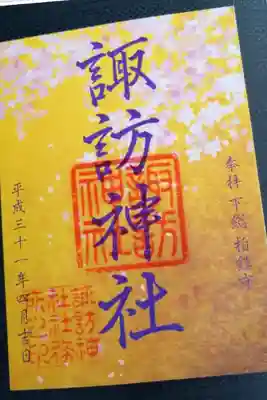 奉拝 下総 柏鎮守
諏訪神社
諏訪
神社
平成三十一年四月吉日
諏訪神
社社務
所之印